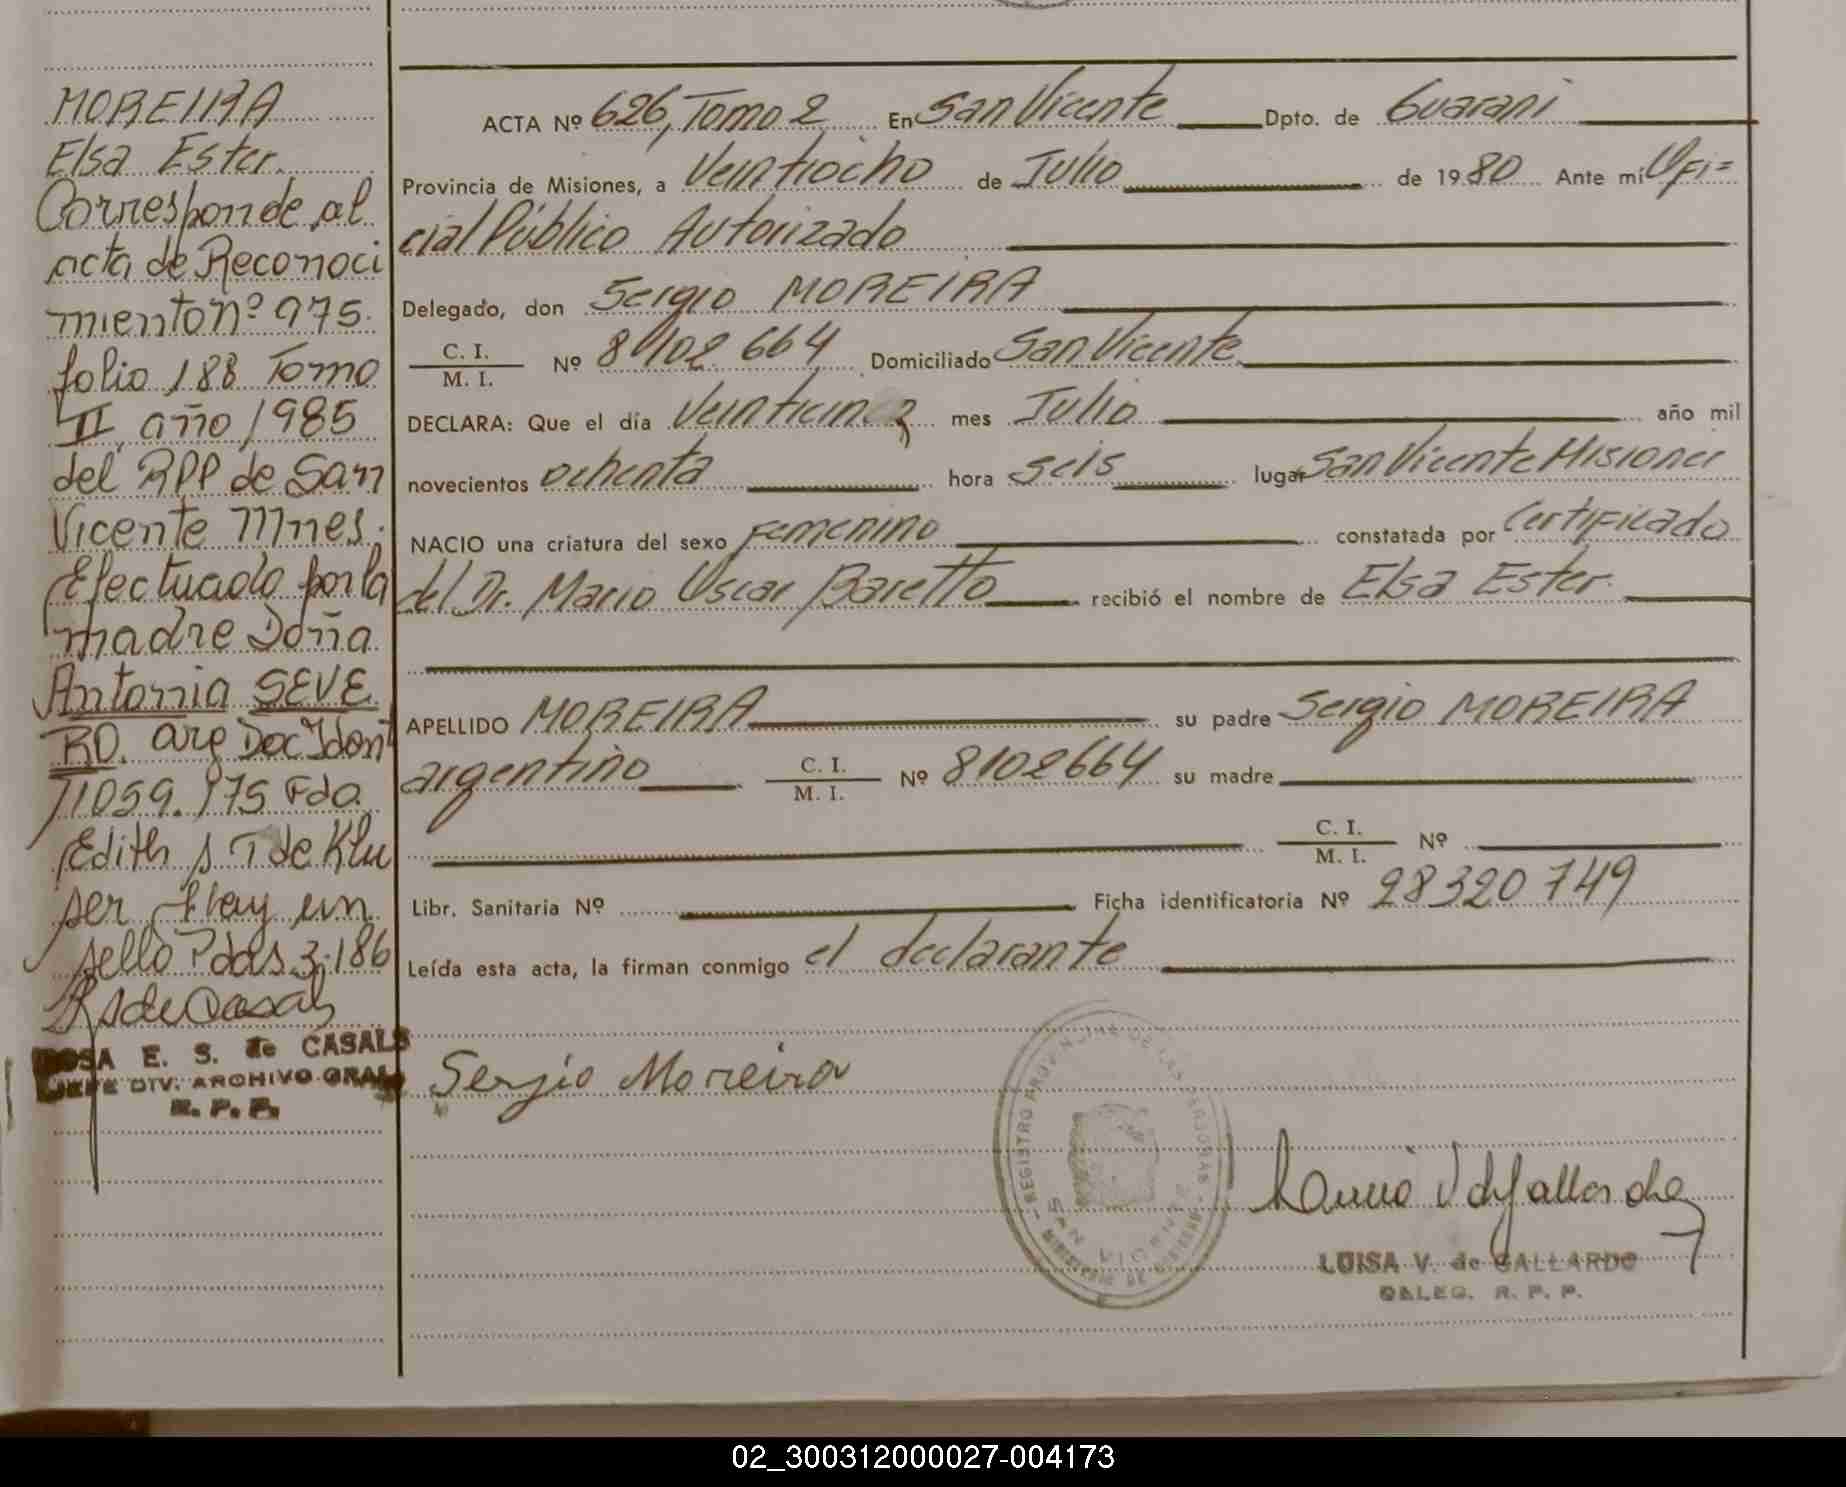 MOREIRA
Elsa Ester.
Corresponde al
acta de Reconoci
miento nº 975.
folio 188 Tomo
II año 1985
del RPP de San
Vicente Mnes.
Efectuado por la
madre Doña
Antonia SEVE
RO. arg Doc Ident
11059.175 Fdo.
Edith s T de Klu
ser Hay un
sello Pdas 3.186
ROSA E. S. de CASALS
JEFE DIV. ARCHIVO GRAL.
R. P. P.
ACTA Nº 626, Tomo 2 En San Vicente Dpto. de Guarani
Provincia de Misiones, a Veintiocho de Julio de 1980 Ante mí Ofi=
cial Público Autorizado
Delegado, don Sergio MOREIRA
C. I.
M. I. Nº 8102.664 Domiciliado San Vicente
DECLARA: Que el día Veinticinco mes Julio año mil
novecientos ochenta hora seis lugar San Vicente Misiones
NACIO una criatura del sexo Femenino constatada por Certificado
del Dr. Mario Oscar Baretto recibió el nombre de Elsa Ester.
APELLIDO MOREIRA su padre Sergio MOREIRA
argentino C. I.
M. I. Nº 8102664 su madre
C. I.
M. I. Nº
Libr. Sanitaria Nº Ficha identificatoria Nº 28320749
Leída esta acta, la firman conmigo el declarante
Sergio Moreira
REGISTRO PROVINCIAL DE LAS PERSONAS
SAN VICENTE
MINISTERIO DE GOBIERNO
LUISA V. de GALLARDO
DELEG. R. P. P.
02_300312000027-004173